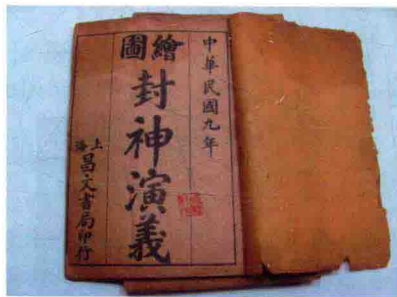 中華民國九年
繪圖
封神演義
上海昌文書局印行